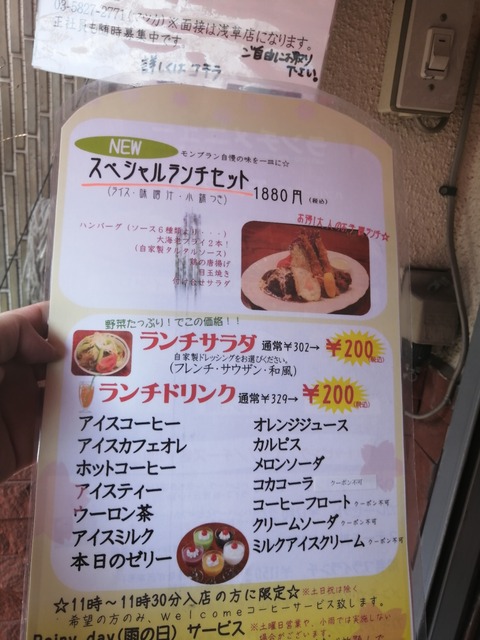 03-6827-2771 ※面接は浅草店になります。
正社員も随時募集中です。
詳しくはコチラ
ご自由にお取り下さい!
NEW
モンブラン自慢の味を一皿に☆
スペシャルランチセット
1880円(税込)
(ライス・味噌汁・小鉢つき)
ハンバーグ(ソース6種類より
大海老フライ2本!
(自家製タルタルソース)
鶏の唐揚げ
目玉焼き
付け合せサラダ
野菜たっぷり!でこの価格!!
ランチサラダ 通常¥302→ ¥200(税込)
自家製ドレッシングをお選びください。
(フレンチ・サウザン・和風)
ランチドリンク 通常¥329→ ¥200(税込)
アイスコーヒー
アイスカフェオレ
ホットコーヒー
アイスティー
ウーロン茶
アイスミルク
本日のゼリー
オレンジジュース
カルピス
メロンソーダ
コカコーラ クーポン不可
コーヒーフロート クーポン不可
クリームソーダ クーポン不可
ミルクアイスクリーム クーポン不可
☆11時~11時30分入店の方に限定☆ ※土日祝は除く
希望の方のみ、Welcomeコーヒーサービス致します。
Rainy day(雨の日) サービス
※土曜日営業や、小雨では実施しない
場合がございます。